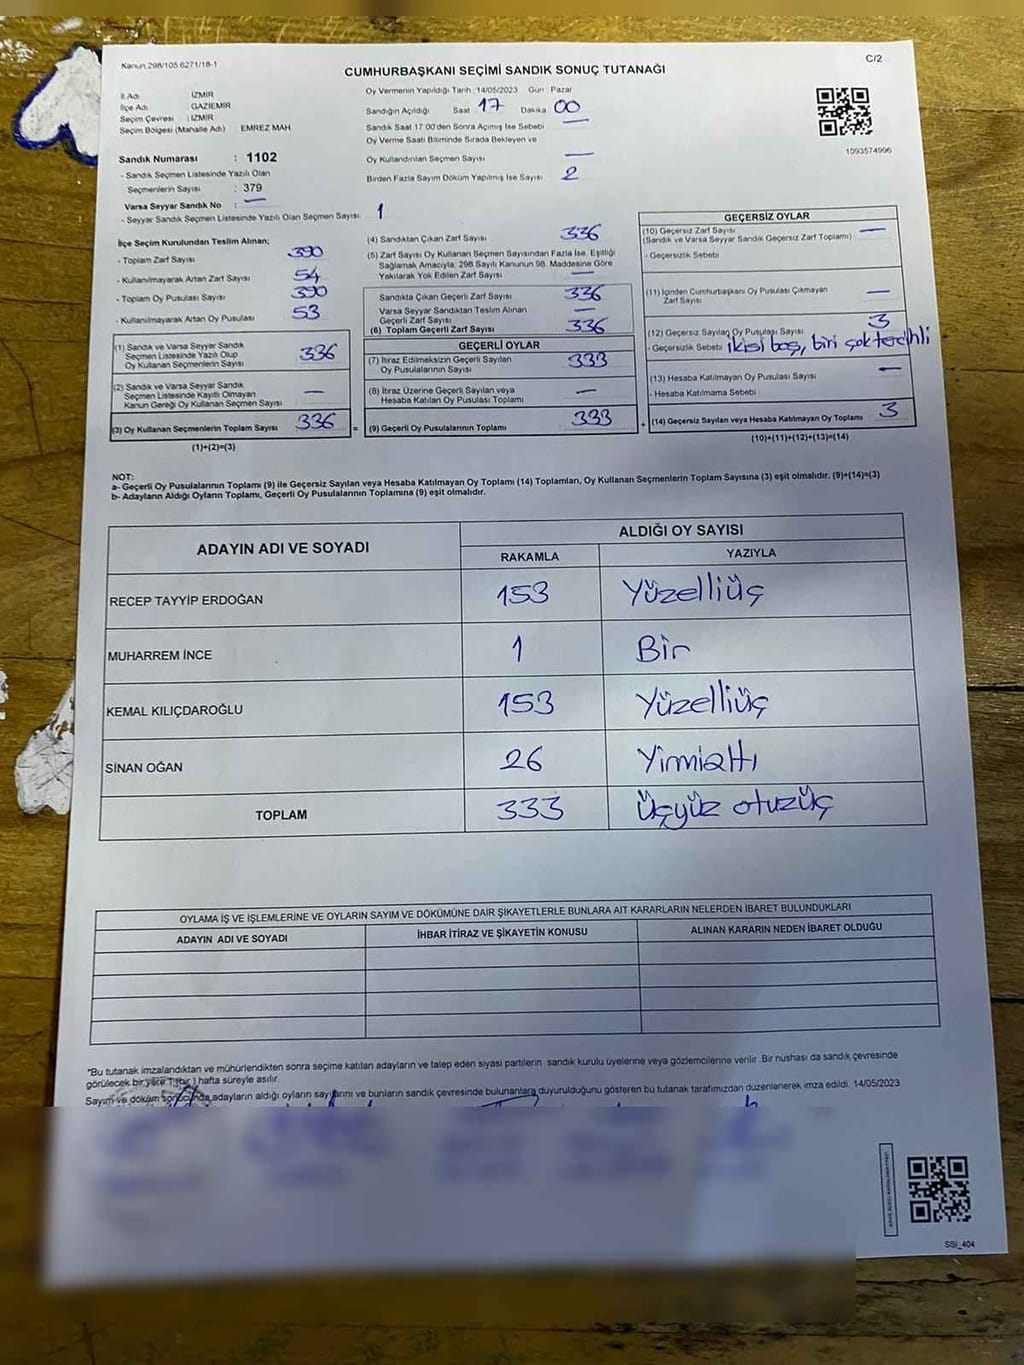 Kanun 298/105.6271/18-1
C/2
CUMHURBAŞKANI SEÇİMİ SANDIK SONUÇ TUTANAĞI
İl Adı : İZMİR
İlçe Adı : GAZİEMİR
Seçim Çevresi : İZMİR
Seçim Bölgesi (Mahalle Adı) EMREZ MAH.
Sandık Numarası : 1102
- Sandık Seçmen Listesinde Yazılı Olan
Seçmenlerin Sayısı : 379
Varsa Seyyar Sandık No : —
- Seyyar Sandık Seçmen Listesinde Yazılı Olan Seçmen Sayısı: 1
Oy Vermenin Yapıldığı Tarih :14/05/2023 Gün : Pazar
Sandığın Açıldığı Saat 17 Dakika 00
Sandık Saat 17:00'den Sonra Açımış İse Sebebi —
Oy Verme Saati Bitiminde Sırada Bekleyen ve
Oy Kullandırılan Seçmen Sayısı —
Birden Fazla Sayım Döküm Yapılmış İse Sayısı 2
1093574996
İlçe Seçim Kurulundan Teslim Alınan;
- Toplam Zarf Sayısı : 390
- Kullanılmayarak Artan Zarf Sayısı : 54
- Toplam Oy Pusulası Sayısı : 390
- Kullanılmayarak Artan Oy Pusulası : 53
(1) Sandık ve Varsa Seyyar Sandık
Seçmen Listesinde Yazılı Olup
Oy Kullanan Seçmenlerin Sayısı 336
(2) Sandık ve Varsa Seyyar Sandık
Seçmen Listesinde Kayıtlı Olmayan
Kanun Gereği Oy Kullanan Seçmen Sayısı —
(3) Oy Kullanan Seçmenlerin Toplam Sayısı 336
(1)+(2)=(3)
(4) Sandıktan Çıkan Zarf Sayısı 336
(5) Zarf Sayısı Oy Kullanan Seçmen Sayısından Fazla İse, Eşitliği
Sağlamak Amacıyla, 298 Sayılı Kanunun 98. Maddesine Göre
Yakılarak Yok Edilen Zarf Sayısı —
Sandıkta Çıkan Geçerli Zarf Sayısı 336
Varsa Seyyar Sandıktan Teslim Alınan
Geçerli Zarf Sayısı —
(6) Toplam Geçerli Zarf Sayısı 336
GEÇERLİ OYLAR
(7) İtiraz Edilmeksizin Geçerli Sayılan
Oy Pusulalarının Sayısı 333
(8) İtiraz Üzerine Geçerli Sayılan veya
Hesaba Katılan Oy Pusulası Toplamı —
= (9) Geçerli Oy Pusulalarının Toplamı 333
GEÇERSİZ OYLAR
(10) Geçersiz Zarf Sayısı —
(Sandık ve Varsa Seyyar Sandık Geçersiz Zarf Toplamı)
- Geçersizlik Sebebi
(11) İçinden Cumhurbaşkanı Oy Pusulası Çıkmayan
Zarf Sayısı —
(12) Geçersiz Sayılan Oy Pusulası Sayısı 3
- Geçersizlik Sebebi ikisi boş, biri çok tercihli
(13) Hesaba Katılmayan Oy Pusulası Sayısı —
- Hesaba Katılmama Sebebi
+ (14) Geçersiz Sayılan veya Hesaba Katılmayan Oy Toplamı 3
(10)+(11)+(12)+(13)=(14)
NOT:
a- Geçerli Oy Pusulalarının Toplamı (9) ile Geçersiz Sayılan veya Hesaba Katılmayan Oy Toplamı (14) Toplamları, Oy Kullanan Seçmenlerin Toplam Sayısına (3) eşit olmalıdır. (9)+(14)=(3)
b- Adayların Aldığı Oyların Toplamı, Geçerli Oy Pusulalarının Toplamına (9) eşit olmalıdır.
ADAYIN ADI VE SOYADI ALDIĞI OY SAYISI
RAKAMLA YAZIYLA
RECEP TAYYİP ERDOĞAN 153 Yüzelliüç
MUHARREM İNCE 1 Bir
KEMAL KILIÇDAROĞLU 153 Yüzelliüç
SİNAN OĞAN 26 Yirmialtı
TOPLAM 333 Üçyüz otuzüç
OYLAMA İŞ VE İŞLEMLERİNE VE OYLARIN SAYIM VE DÖKÜMÜNE DAİR ŞİKAYETLERLE BUNLARA AİT KARARLARIN NELERDEN İBARET BULUNDUKLARI
ADAYIN ADI VE SOYADI İHBAR İTİRAZ VE ŞİKAYETİN KONUSU ALINAN KARARIN NEDEN İBARET OLDUĞU
*Bu tutanak imzalandıktan ve mühürlendikten sonra seçime katılan adayların ve talep eden siyasi partilerin sandık kurulu üyelerine veya gözlemcilerine verilir. Bir nüshası da sandık çevresinde
görülecek bir yere 1 (bir) hafta süreyle asılır.
Sayım ve döküm sonucunda adayların aldığı oyların sayılarını ve bunların sandık çevresinde bulunanlara duyurulduğunu gösteren bu tutanak tarafımızdan düzenlenerek imza edildi. 14/05/2023
SSI_404